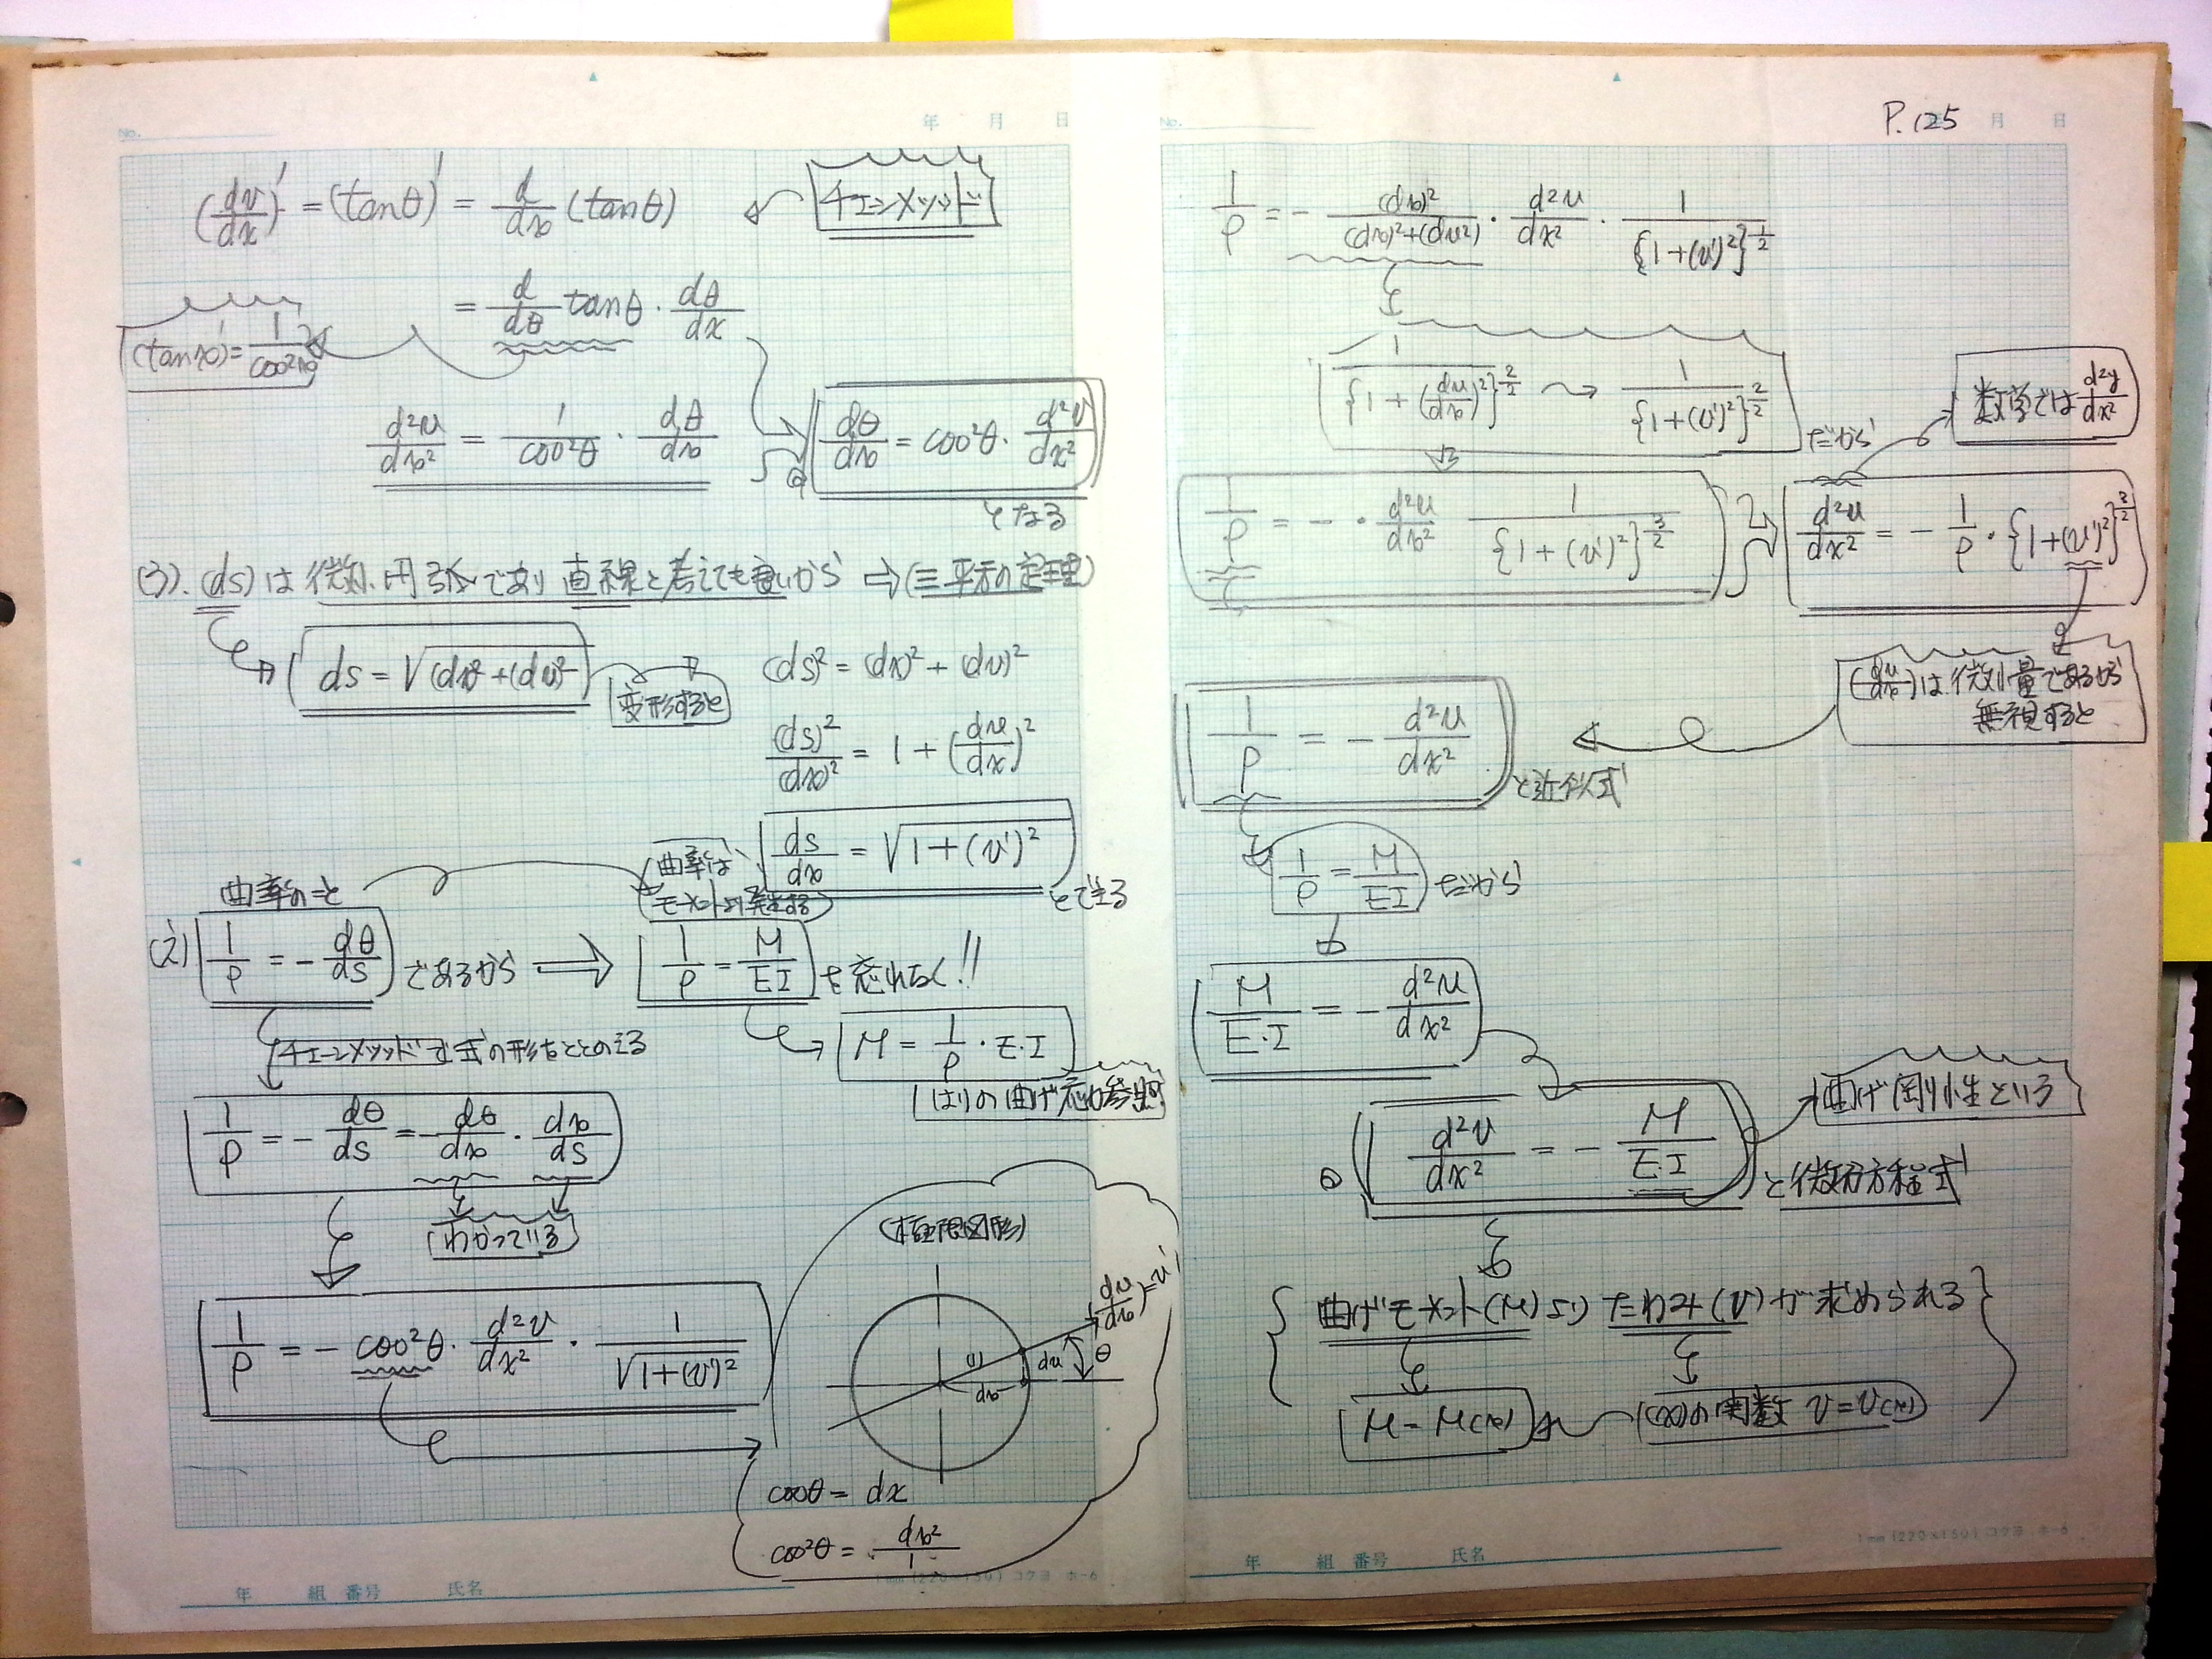 No.
年 月 日
(dv/dx)' = (tanθ)' = d/dx (tanθ)
チェーンメソッド
= d/dθ tanθ · dθ/dx
(tanx)' = 1/cos²x
d²v/dx² = 1/cos²θ · dθ/dx
dθ/dx = cos²θ · d²v/dx²
となる
(3). (ds)は微小円弧であり直線と考えても良いから ⇒ (三平方の定理)
ds = √(dx)²+(dv)²
変形すると
(ds)² = (dx)² + (dv)²
(ds)²/(dx)² = 1 + (dv/dx)²
ds/dx = √1+(v')²
とできる
曲率のこと
曲率は
モーメントより発生する
1/ρ = - dθ/ds であるから ⇒ 1/ρ = M/EI を忘れなく!!
M = 1/ρ · E.I
はりの曲げ応力参照
チェーンメソッドで式の形をととのえる
1/ρ = - dθ/ds = - dθ/dx · dx/ds
わかっている
1/ρ = - cos²θ · d²v/dx² · 1/√1+(v')²
(極限図形)
(dv/dx)=v'
(1)
dx
dv
θ
cosθ = dx
cos²θ = dx²/1
年 組 番号 氏名
1mm (220×150) コクヨ ホ-6
No.
P.125
月 日
1/ρ = - (dx)²/(dx)²+(dv²) · d²v/dx² · 1/{1+(v')²}^1/2
1/{1+(dv/dx)²}^2/2 → 1/{1+(v')²}^2/2
だから
数学では d²y/dx²
1/ρ = - · d²v/dx² 1/{1+(v')²}^3/2
d²v/dx² = - 1/ρ · {1+(v')²}^3/2
(dv/dx)は微小量であるから
無視すると
1/ρ = - d²v/dx²
と近似式
1/ρ = M/EI だから
M/E·I = - d²v/dx²
d²v/dx² = - M/E·I
と微分方程式
曲げ剛性という
曲げモーメント(M)より たわみ(v)が求められる
M = M(x)
(x)の関数 v = v(x)
年 組 番号 氏名
1mm (220×150) コクヨ ホ-6